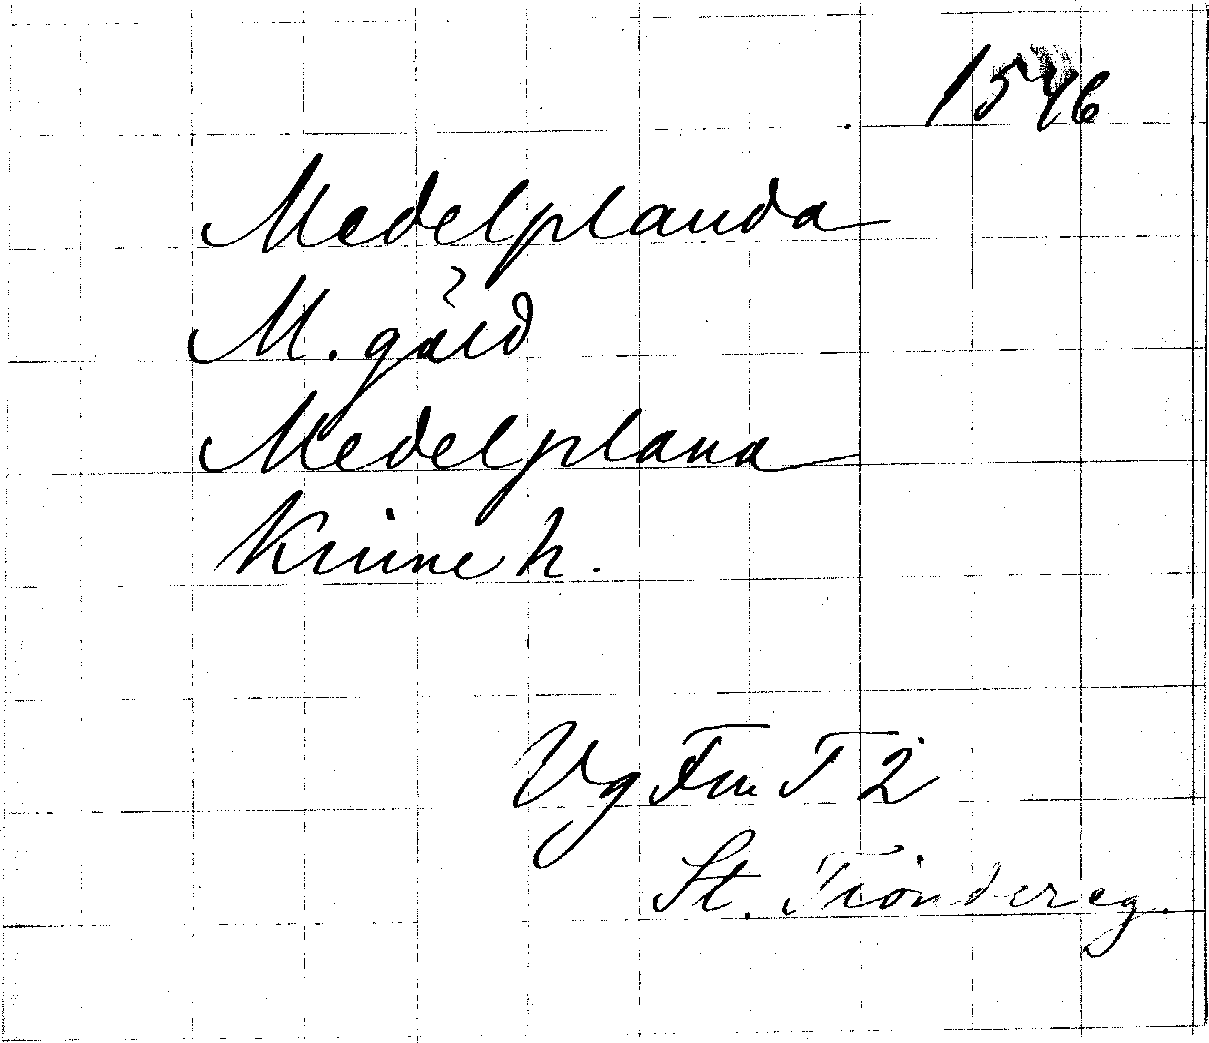 1546
Medelplanda
M. gäld
Medelplana
Kinne h.
Vg Fm T 2
St. Tiondereg.